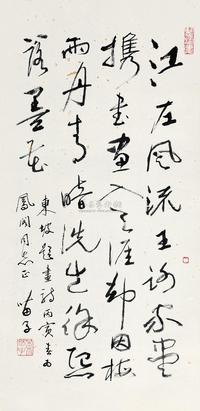 江左風流王謝家盡
攜書畫入天涯却因梅
雨丹青暗洗出徐熙
落墨花
東坡題畫詩丙寅春為
鳳閣同志正 苗子